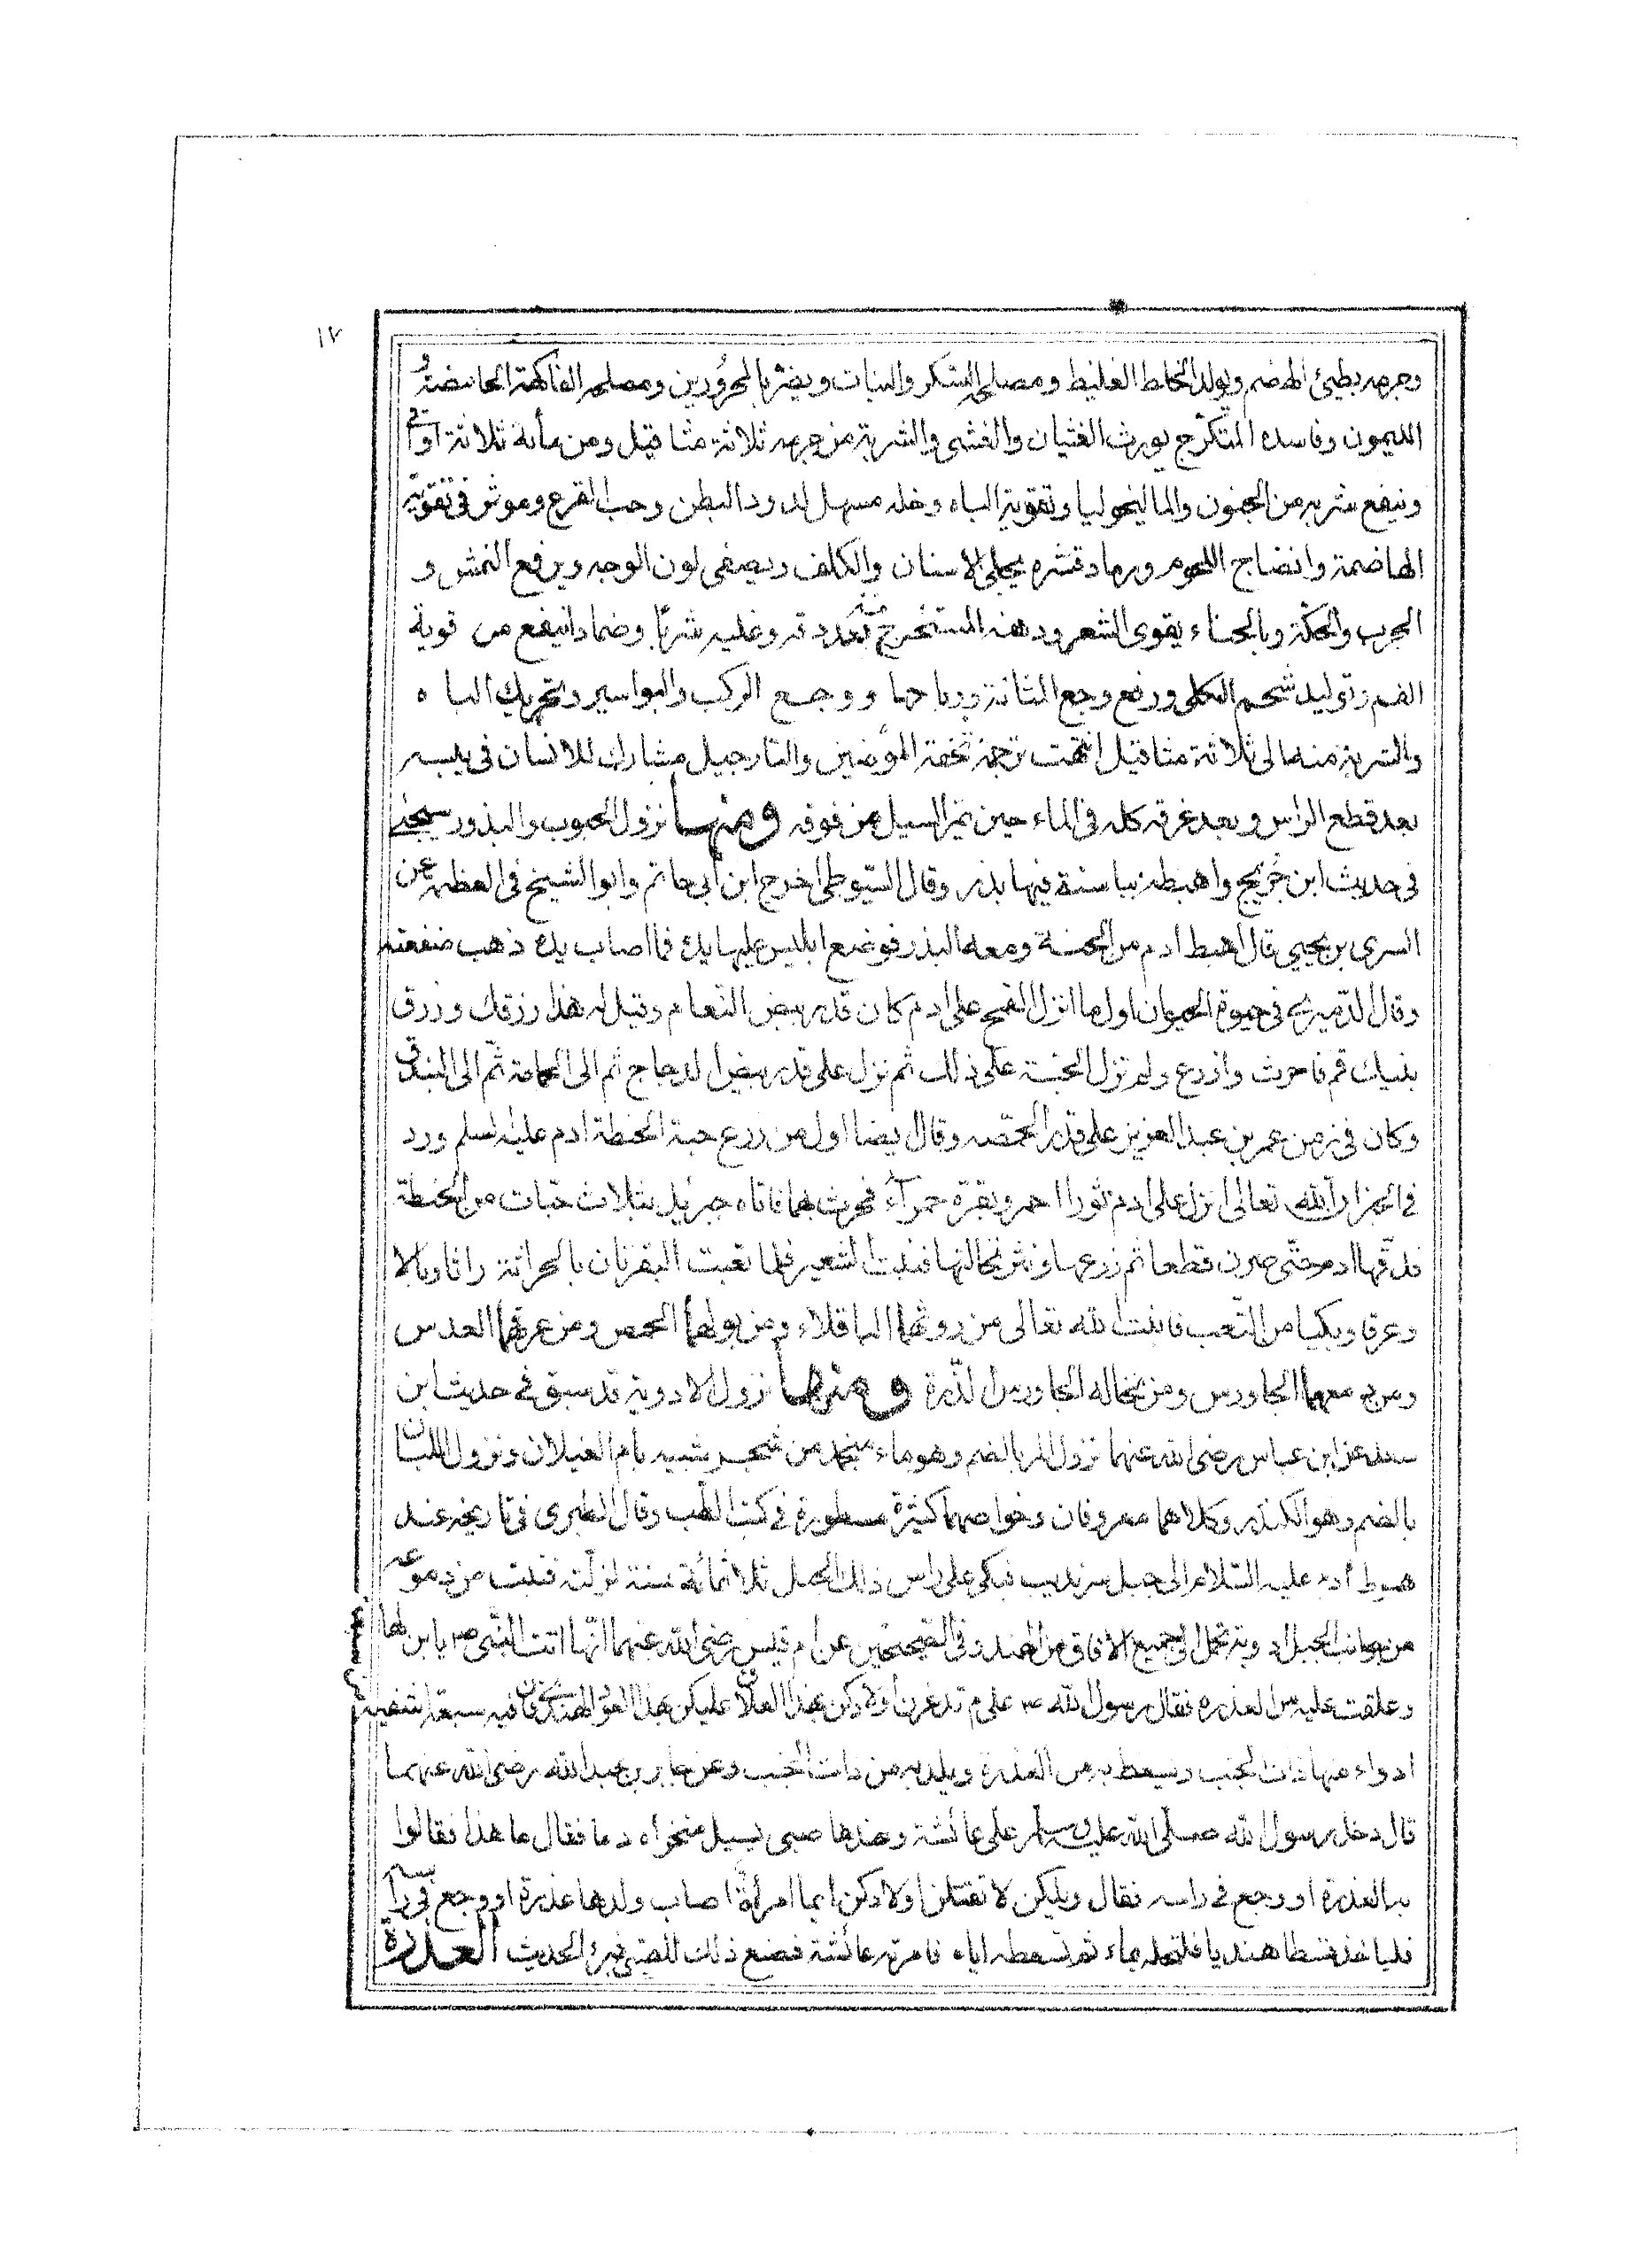 ١٧
وجرمه بطيئ الهضم ويولد الخلط الغليظ ومصلحه السكر والنبات ويضر بالمحرورين ومصلحه الفاكهة الحامضة و
الليمون وفاسده المتكرج يورث الغثيان والغشى والشربة من جرمه ثلاثة مثاقيل ومن مأئه ثلاثة أواقى
وينفع شربه من الجنون والماليخوليا وتقوية الباه وخله مسهل لدود البطن وحب القرع وموثر فى تقوية
الهاضمة وانضاج اللحوم ورماد قشره يجلى الاسنان والكلف ويصفى لون الوجه ويرفع النمش و
الجرب والحكة وبالحناء يقوى الشعر ودهنه المستخرج شربًا وضمادا ينفع من قوية
الفم وتوليد شحم الكلى ورفع وجع المثانة ورياحها ووجع الركب والبواسير وتحريك الباه
والشربة منه الى ثلاثة مثاقيل انتهت ترجمة تحفة المؤمنين والنارجيل مشارك للانسان فى يبسه
بعد قطع الراس وبعد غرقه كله فى الماء حين يمر السيل من فوقه ومنها نزول الحبوب والبذور سيجئ
فى حديث ابن جريج واهبطه بباسنة فيها بذر وقال السيوطى اخرج ابن ابى حاتم وابو الشيخ فى العظمة عن
السرى بن يحيى قال اهبط ادم من الجنة ومعه البذر فوضع ابليس عليها يده فما اصاب يده ذهب منفعته
وقال الدميرى فى حيوة الحيوان اول ما انزل القمح على ادم كان قدر بيض النعام وقيل له هذا رزقك ورزق
بنيك قم فاحرث وازرع ولم تزل الحبة على ذلك ثم نزل على قدر بيض الدجاج ثم الى الحمامة ثم الى البندق
وكان فى زمن عمر بن عبد العزيز على قدر الحمصه وقال ايضا اول من زرع حبة الحنطة ادم عليه السلم ورد
فى الخبر ان الله تعالى انزل على ادم ثورا احمر وبقرة حمرآء فحرث بهما فاتاه جبريل بثلاث حبات من الحنطة
فدقها ادم حتى صرن قطعا ثم زرعها ونثر نخالتها فنبت الشعير فلما تعبت البقرتان بالحراثة راثا وبالا
وعرقا وبكيا من التعب فانبت الله تعالى من روثهما الباقلاء ومن بولهما الحمص ومن عرقهما العدس
ومن دمعهما الجاورس ومن نخاله الجاورس الذرة ومنها نزول الادوية قد سبق فى حديث ابن
سعد عن ابن عباس رضى الله عنهما نزول المر بالضم وهو ماء منجمد من شجر شبيه بام الغيلان ونزول اللبان
بالضم وهو الكندر وكلاهما معروفان وخواصهما كثيرة مسطورة فى كتب الطب وقال الطبرى فى تاريخه عند
هبوط أدم عليه السلام الى جبل سرنديب فبكى على راس ذلك الجبل ثلاثمائة سنة لزلته فنبت من دموعه
من جوانب الجبل ادوية تحمل الى جميع الافاق من الهند وفى الصحيحين عن ام قيس رضى الله عنهما انها اتت النبى ص م بابن لها
وعلقت عليه من العذره فقال رسول الله ص م على م تدغرن اولادكن بهذا العلاق عليكن بهذا العود الهندى فان فيه سبعة اشفية
ادواء منها ذات الجنب ويسعط به من العذرة ويلد به من ذات الجنب وعن جابر بن عبد الله رضى الله عنهما
قال دخل رسول الله صلى الله عليه وسلم على عائشة وعندها صبى يسيل منخراه دما فقال ما هذا فقالوا
به العذرة او وجع فى راسه فقال ويلكن لا تقتلن اولادكن ايما امرأة اصاب ولدها عذرة او وجع فى رآسه
فلياخذ قسطا هنديا فلتحله بماء ثم تسعطه اياه فامرته عائشة فصنع ذلك للصبى فبرئ الحديث العذرة